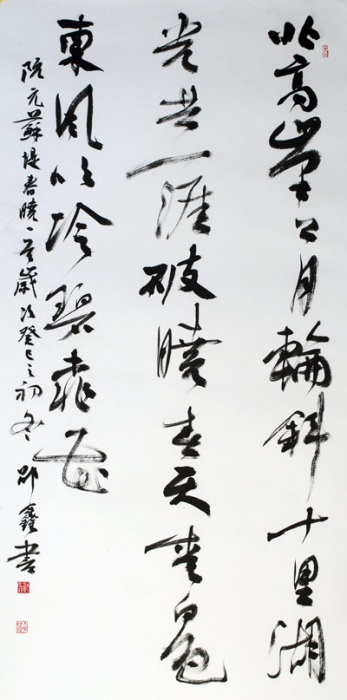 北高峯上月輪斜十里湖
光共一涯破曉春天青白色
東風吹冷碧桃花
阮元蘇堤春曉一首歲次癸巳之初冬邵鑫書